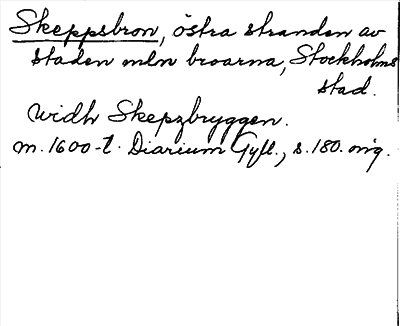 Skeppsbron, östra stranden av
staden mln broarna, Stockholms
stad.
widh Skepzbryggen.
m. 1600-t. Diarium Gyll., s. 180. orig.